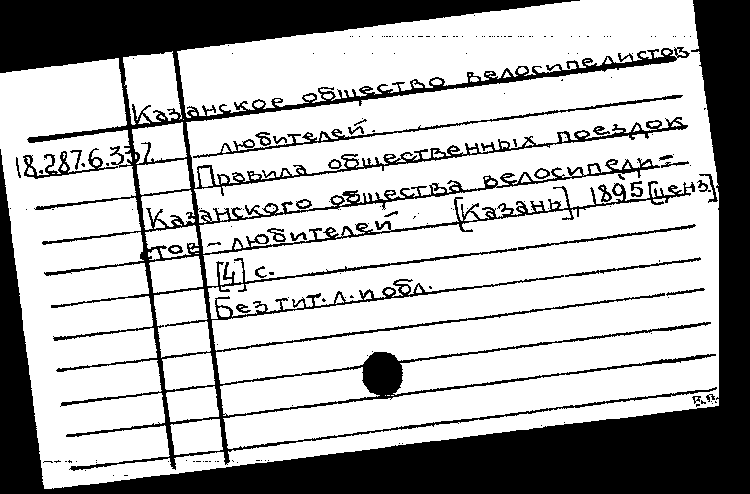 Казанское общество велосипедистов-
любителей.
18.287.6.337.
Правила общественных поездок
Казанского общества велосипеди=
стов-любителей [Казань], 1895 [ценз].
[4] с.
Без тит. л. и обл.